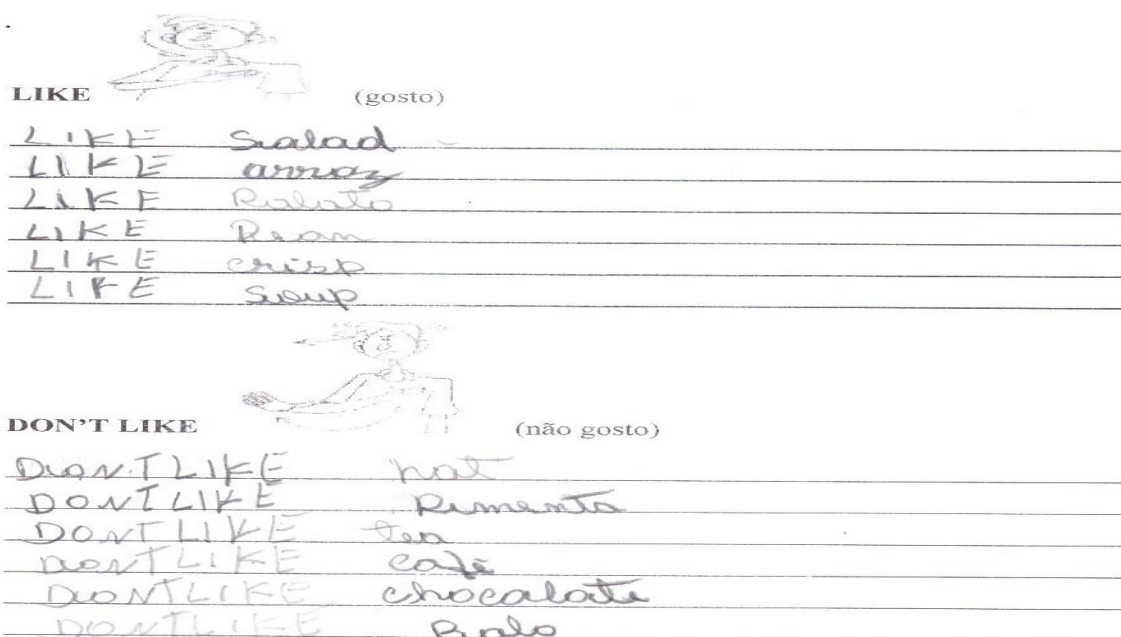 LIKE (gosto)
LIKE Salad
LIKE arroz
LIKE
LIKE
LIKE crisp
LIKE Soup
DON'T LIKE (não gosto)
DONT LIKE
DONT LIKE Pimenta
DONT LIKE tea
DONT LIKE café
DONT LIKE chocalate
DONT LIKE